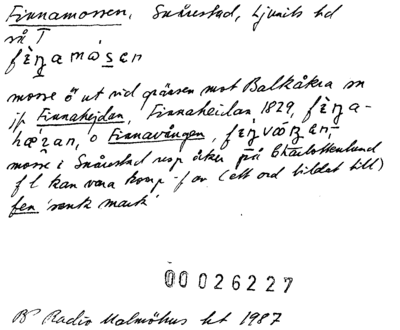 Finnamossen, Snårestad, Ljunits hd
så T
fìŋamɷ̀sen
mosse ö ut vid gränsen mot Balkåkra sn
jfr Finnahejdan, Finnaheidan 1829, fìŋa-
o Finnavången,
mosse i Snårestad resp åker på Charlottenlund
f l kan vara komp -f av (ett ord bildat till)
fen 'sank mark'
00026227
Radio Malmöhus ht 1987